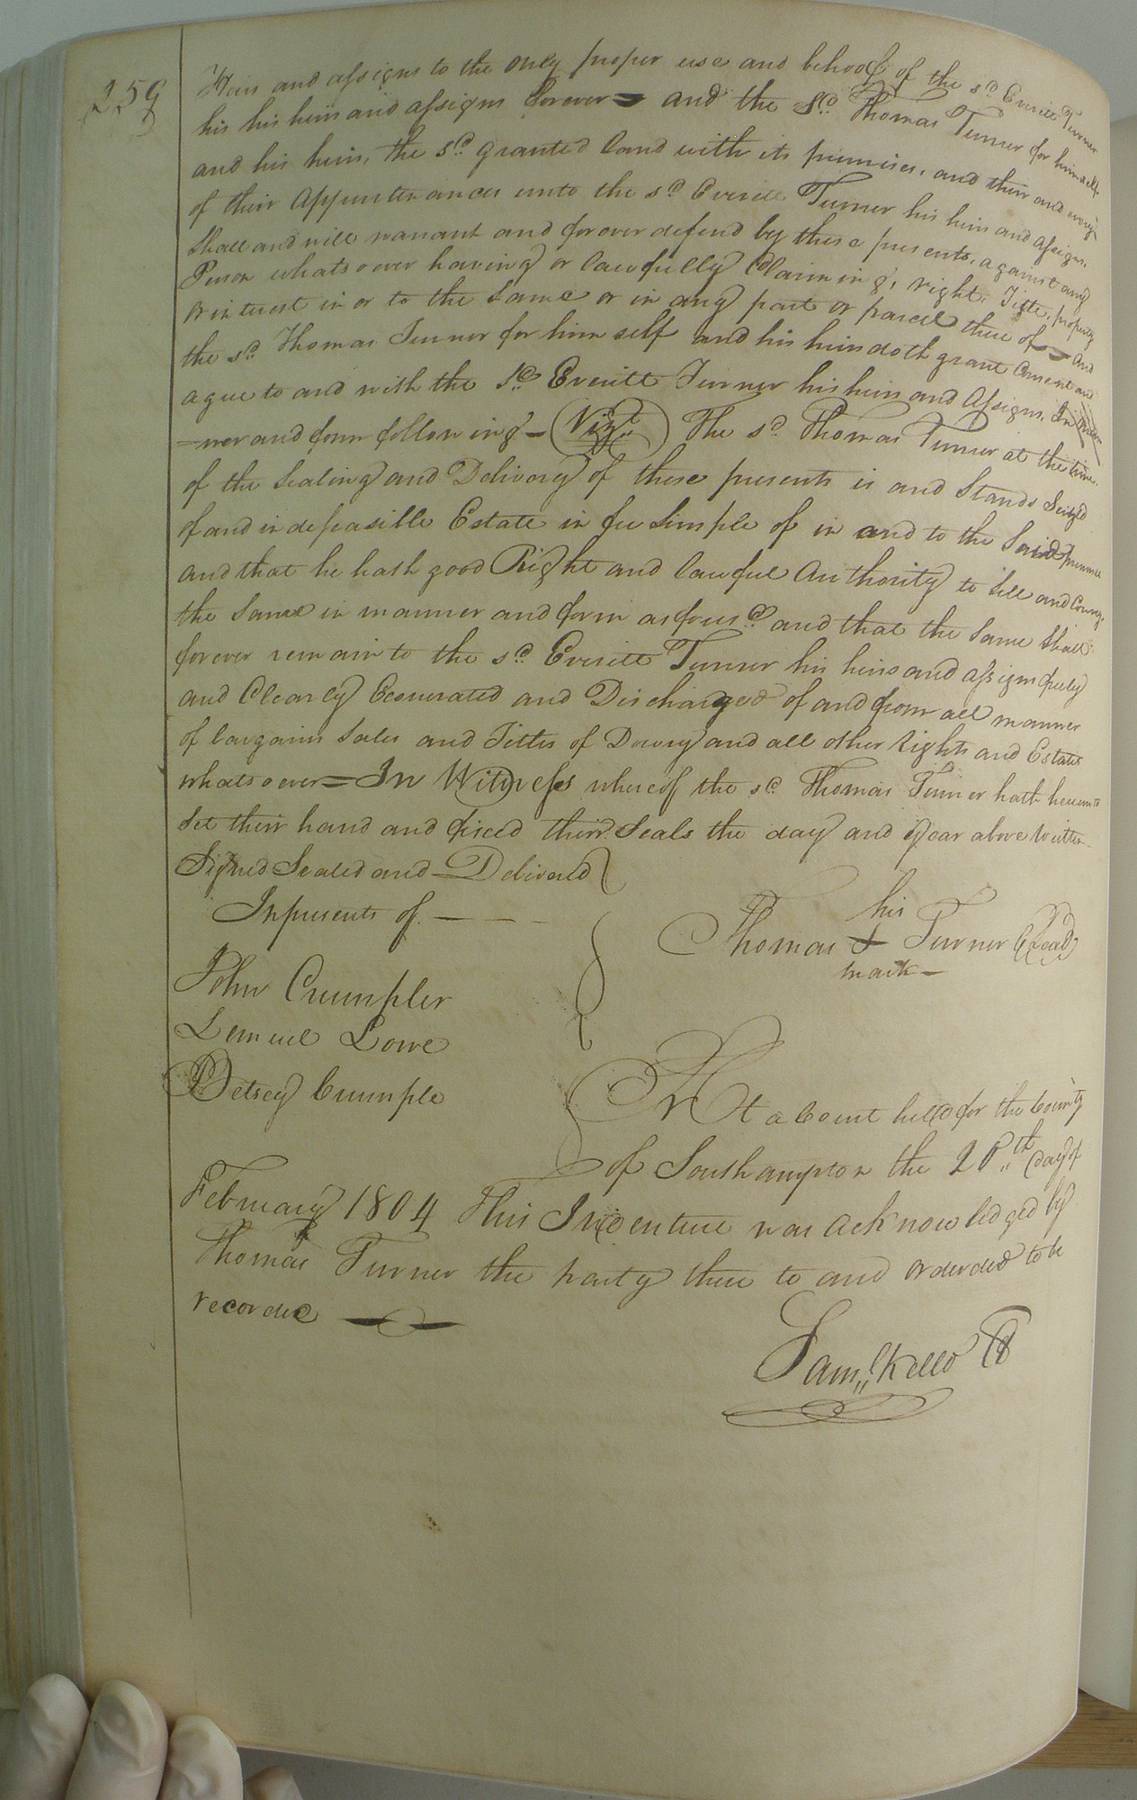 259
Heirs and assigns to the only proper use and behoof of the sd. Everitt Turner
his his heirs and assigns forever = and the sd. Thomas Turner for himself
and his heirs, the sd. granted land with its premises, and their and every
of their appurtenances unto the sd. Everitt Turner his heirs and assigns,
Shall and will warrant and forover defend by these presents, against any
Person whatsoever having or lawfully Claiming, right, Title, property
or interest in or to the same or in any part or parcel there of = And
the sd. Thomas Turner for him self and his heirs doth grant Consent and
agree to and with the sd. Everitt Turner his heirs and Assigns, In
-ner and form following - (Vizt.) The sd. Thomas Turner at the time
of the Sealing and Delivery of these presents is and Stands Seized
of and indefeasible Estate in fee Simple of in and to the Said premises
and that he hath good Right and lawful Authority to Sell and Convey
the Same in manner and form aforesd. and that the Same Shall
forever remain to the sd. Everitt Turner his heirs and assigns freely
and Clearly Exonerated and Discharged of and from all manner
of bargains Sales and Titles of Dowry and all other Rights and Estates
whatsoever = In Witness whereof the sd. Thomas Turner hath hereunto
Set their hand and fixed their Seals the day and year above Written
Signed Sealed and Deliverd
In presents of - - -
his
Thomas + Turner (Seal)
mark -
John Crumpler
Lemuel Lowe
Betsey Crumple
At a Court held for the County
of Southampton the 20th day of
February 1804 This Indenture was acknowledged by
Thomas Turner the party there to and orderded to be
recorded
Sam,, Kello CC